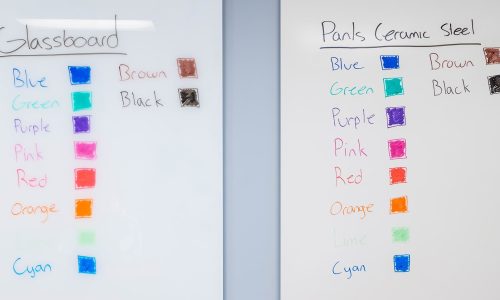 Glassboard
Blue
Green
Purple
Pink
Red
Orange
Lime
Cyan
Brown
Black
Pan1s Ceramic Steel
Blue
Green
Purple
Pink
Red
Orange
Lime
Cyan
Brown
Black